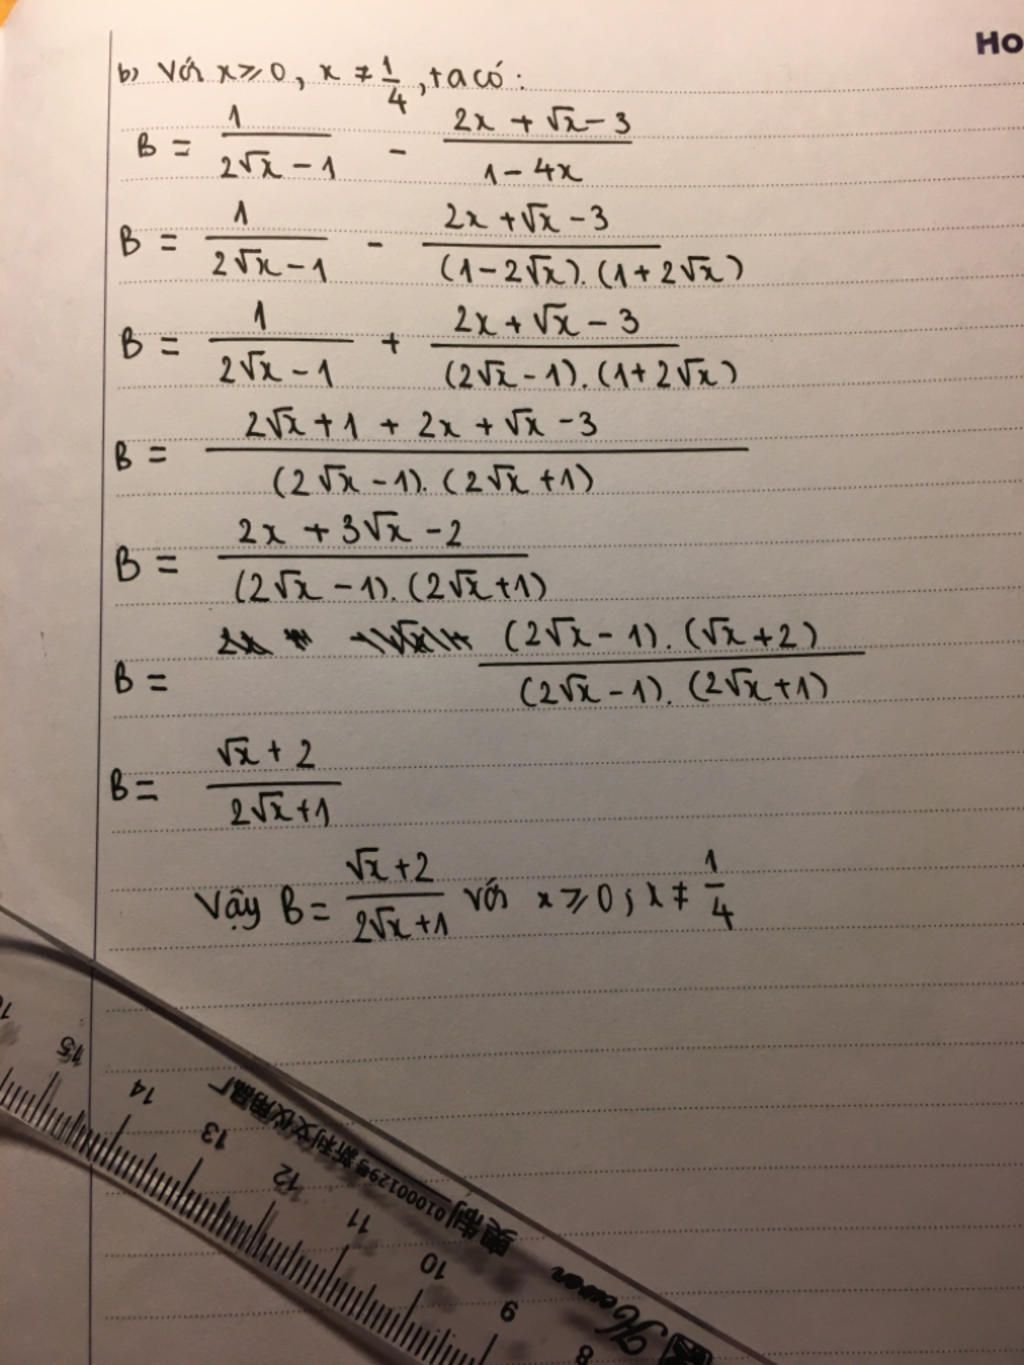 Ho
b) Với x ⩾ 0, x ≠ 1/4, ta có:
B = 1/(2√x - 1) - (2x + √x - 3)/(1 - 4x)
B = 1/(2√x - 1) - (2x + √x - 3)/((1 - 2√x).(1 + 2√x))
B = 1/(2√x - 1) + (2x + √x - 3)/((2√x - 1).(1 + 2√x))
B = (2√x + 1 + 2x + √x - 3)/((2√x - 1).(2√x + 1))
B = (2x + 3√x - 2)/((2√x - 1).(2√x + 1))
B = ((2√x - 1).(√x + 2))/((2√x - 1).(2√x + 1))
B = (√x + 2)/(2√x + 1)
Vậy B = (√x + 2)/(2√x + 1) với x ⩾ 0; x ≠ 1/4
15 14 13 12 11 10 9 8